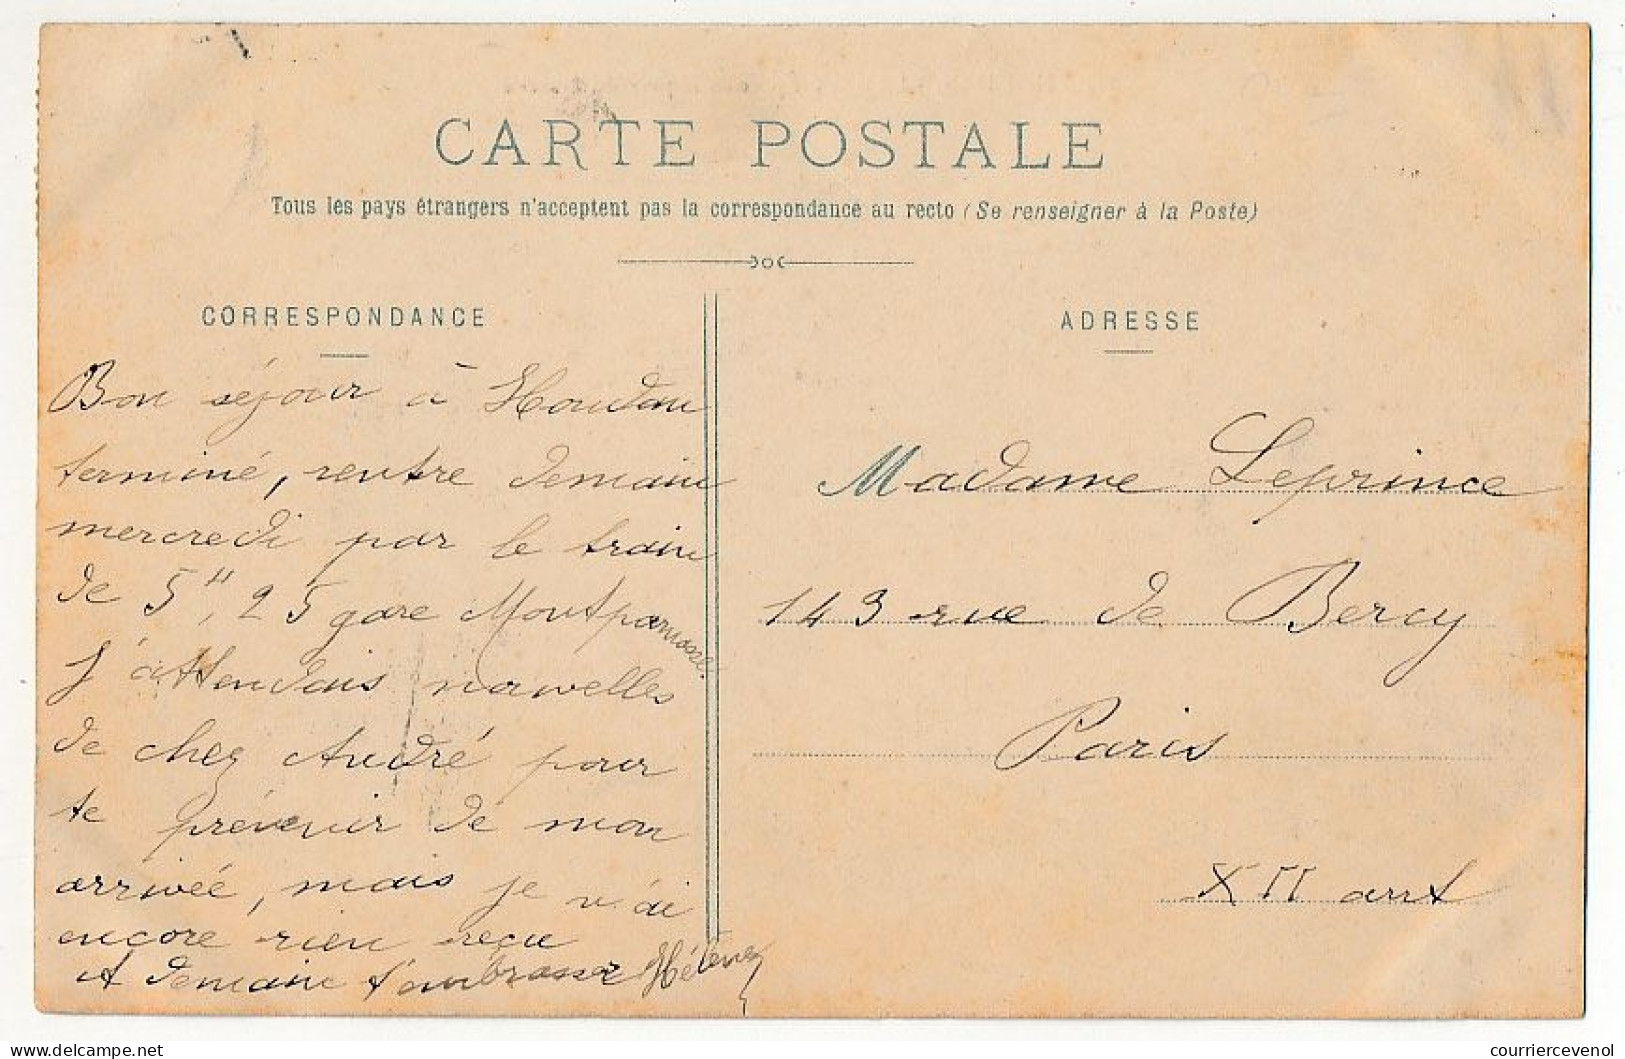 CARTE POSTALE
Tous les pays étrangers n'acceptent pas la correspondance au recto (Se renseigner à la Poste)
CORRESPONDANCE
Bon séjour à Houdan
terminé, rentre demain
mercredi par le train
de 5H, 25 gare Montparnasse.
J'attendais nouvelles
de chez André pour
te prévenir de mon
arrivée, mais je n'ai
encore rien reçu
A demain t'embrasser Hélène
ADRESSE
Madame Leprince
143 rue de Bercy
Paris
XII arrt
delcampe.net
courriercevenol